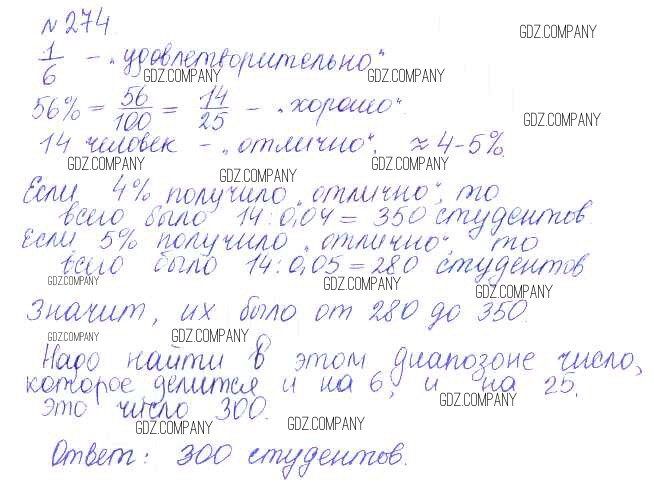 № 274.
GDZ.COMPANY
1/6 – „удовлетворительно“
GDZ.COMPANY GDZ.COMPANY
56% = 56/100 = 14/25 – „хорошо“.
GDZ.COMPANY
14 человек – „отлично“. ≈ 4-5%.
GDZ.COMPANY GDZ.COMPANY GDZ.COMPANY
Если 4% получило „отлично“, то
всего было 14 : 0,04 = 350 студентов.
Если 5% получило „отлично“, то
всего было 14 : 0,05 = 280 студентов
GDZ.COMPANY GDZ.COMPANY GDZ.COMPANY
Значит, их было от 280 до 350.
GDZ.COMPANY GDZ.COMPANY
Надо найти в этом диапозоне число,
которое делится и на 6, и на 25.
GDZ.COMPANY
Это число 300.
GDZ.COMPANY GDZ.COMPANY
Ответ: 300 студентов.
GDZ.COMPANY